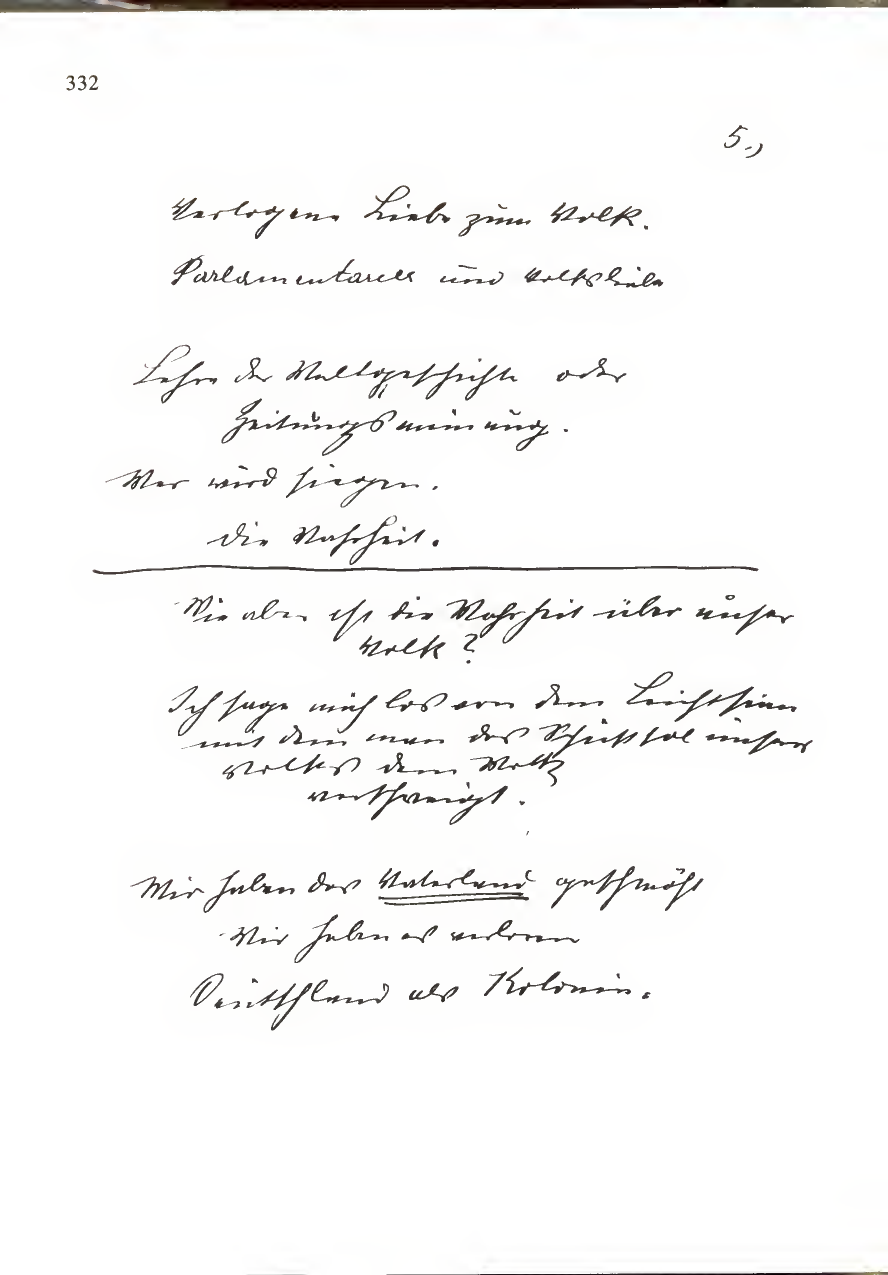 332
5.)
Verlogene Liebe zum Volk.
Parlamentarell und Volksliebe
Lehre der Weltgeschichte oder
Zeitungsmeinung.
Wer wird siegen.
die Wahrheit.
Wie aber ist die Wahrheit über unser
Volk?
Ich sage mich los von dem Leichtsinn
mit dem man das Schicksal unseres
Volkes dem Volk
verschweigt.
Wir haben das Vaterland geschmäht
Wir haben es verloren
Deutschland als Kolonie.